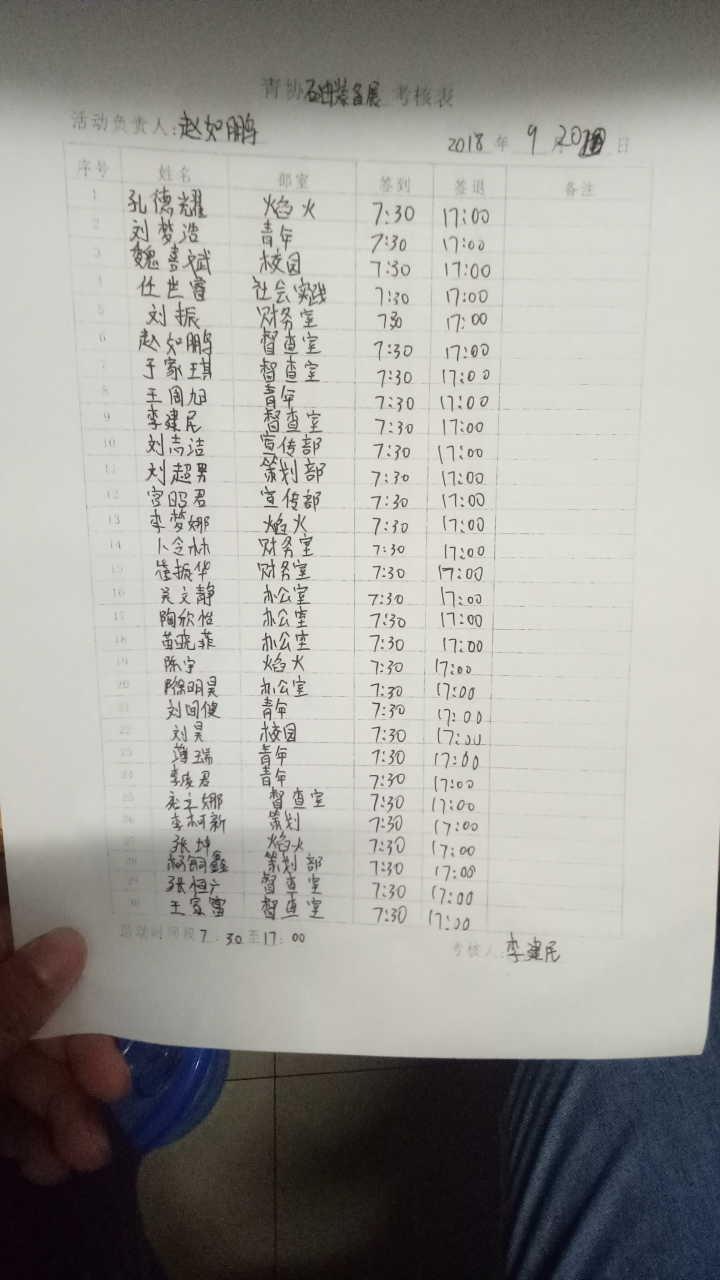 青协石油装备展 考核表
活动负责人:赵如鹏
2018 年 9 月 20 日
序号 姓名 部室 签到 签退 备注
1 孔德耀 焰火 7:30 17:00
2 刘梦浩 青年 7:30 17:00
3 魏喜斌 校园 7:30 17:00
4 任世睿 社会实践 7:30 17:00
5 刘振 财务室 730 17:00
6 赵如鹏 督查室 7:30 17:00
7 于家琪 督查室 7:30 17:00
8 王周旭 青年 7:30 17:00
9 李建民 督查室 7:30 17:00
10 刘志洁 宣传部 7:30 17:00
11 刘超男 策划部 7:30 17:00
12 宫昭君 宣传部 7:30 17:00
13 李梦娜 焰火 7:30 17:00
14 卜令林 财务室 7:30 17:00
15 崔振华 财务室 7:30 17:00
16 吴文静 办公室 7:30 17:00
17 陶欣怡 办公室 7:30 17:00
18 苗晓菲 办公室 7:30 17:00
19 陈宇 焰火 7:30 17:00
20 徐明昊 办公室 7:30 17:00
21 刘国健 青年 7:30 17:00
22 刘昊 校园 7:30 17:00
23 薄瑞 青年 7:30 17:00
24 李凌君 青年 7:30 17:00
25 督查室 7:30 17:00
26 李柯新 策划 7:30 17:00
27 张坤 焰火 7:30 17:00
28 杨鑫 策划部 7:30 17:00
29 张恒广 督查室 7:30 17:00
30 王家富 督查室 7:30 17:00
活动时间段 7:30 至 17:00
考核人:李建民